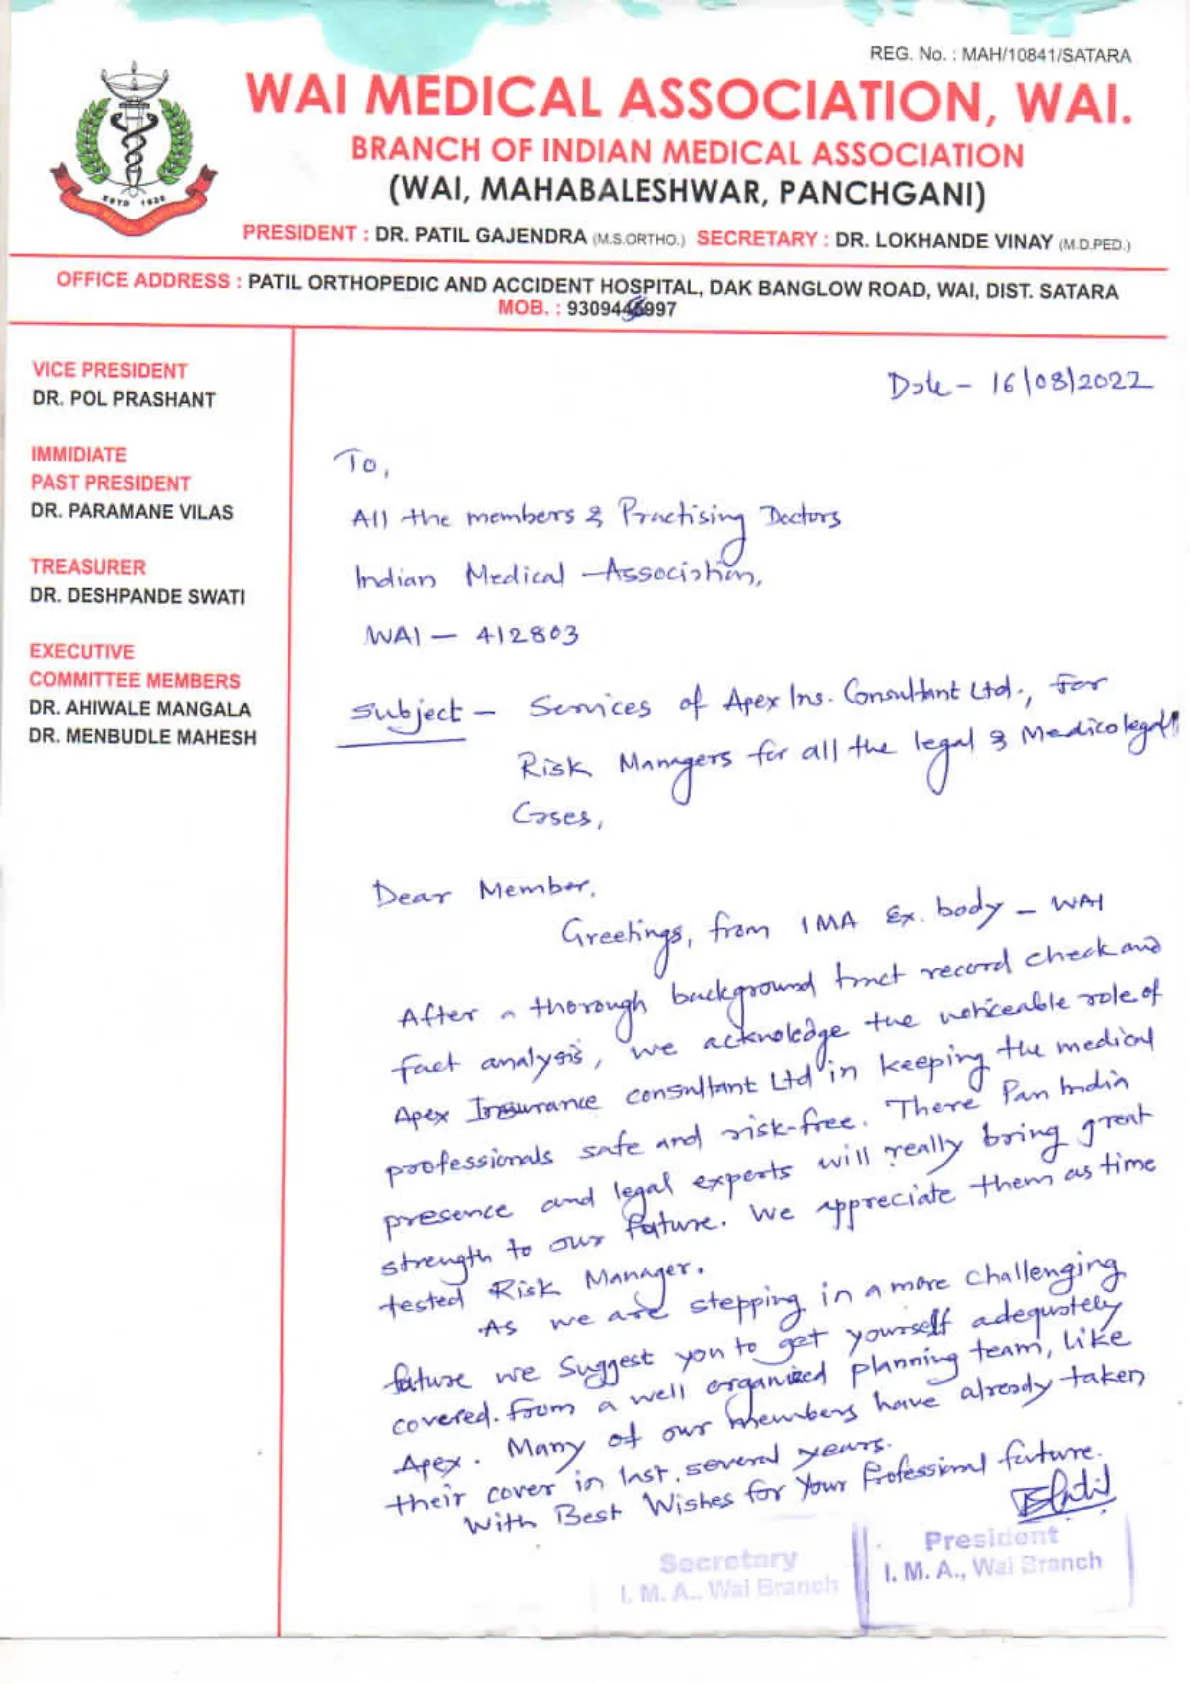 REG. No. : MAH/10841/SATARA
WAI MEDICAL ASSOCIATION, WAI.
BRANCH OF INDIAN MEDICAL ASSOCIATION
(WAI, MAHABALESHWAR, PANCHGANI)
ESTD 1928
INDIAN MEDICAL ASSOCIATION
PRESIDENT : DR. PATIL GAJENDRA (M.S.ORTHO.) SECRETARY : DR. LOKHANDE VINAY (M.D.PED.)
OFFICE ADDRESS : PATIL ORTHOPEDIC AND ACCIDENT HOSPITAL, DAK BANGLOW ROAD, WAI, DIST. SATARA
MOB. :
VICE PRESIDENT
DR. POL PRASHANT
IMMIDIATE
PAST PRESIDENT
DR. PARAMANE VILAS
TREASURER
DR. DESHPANDE SWATI
EXECUTIVE
COMMITTEE MEMBERS
DR. AHIWALE MANGALA
DR. MENBUDLE MAHESH
Date - 16/08/2022
To,
All the members & Practising Doctors
Indian Medical Association,
WAI - 412803
Subject - Services of Apex Ins. Consultant Ltd., For
Risk Managers for all the legal & Medicolegal
Cases,
Dear Member,
Greetings, from IMA Ex. body - WAI
After a thorough background tract record check and
fact analysis, we acknoledge the noticeable role of
Apex Insurance consultant Ltd in keeping the medical
professionals safe and risk-free. There Pan India
presence and legal experts will really bring great
strength to our future. We appreciate them as time
tested Risk Manager.
As we are stepping in a more challenging
future we suggest you to get yourself adequately
covered. from a well organized planning team, like
Apex. Many of our members have already taken
their cover in last several years.
With Best Wishes for Your Professional future.
Secretary
I. M. A., Wai Branch
President
I. M. A., Wai Branch